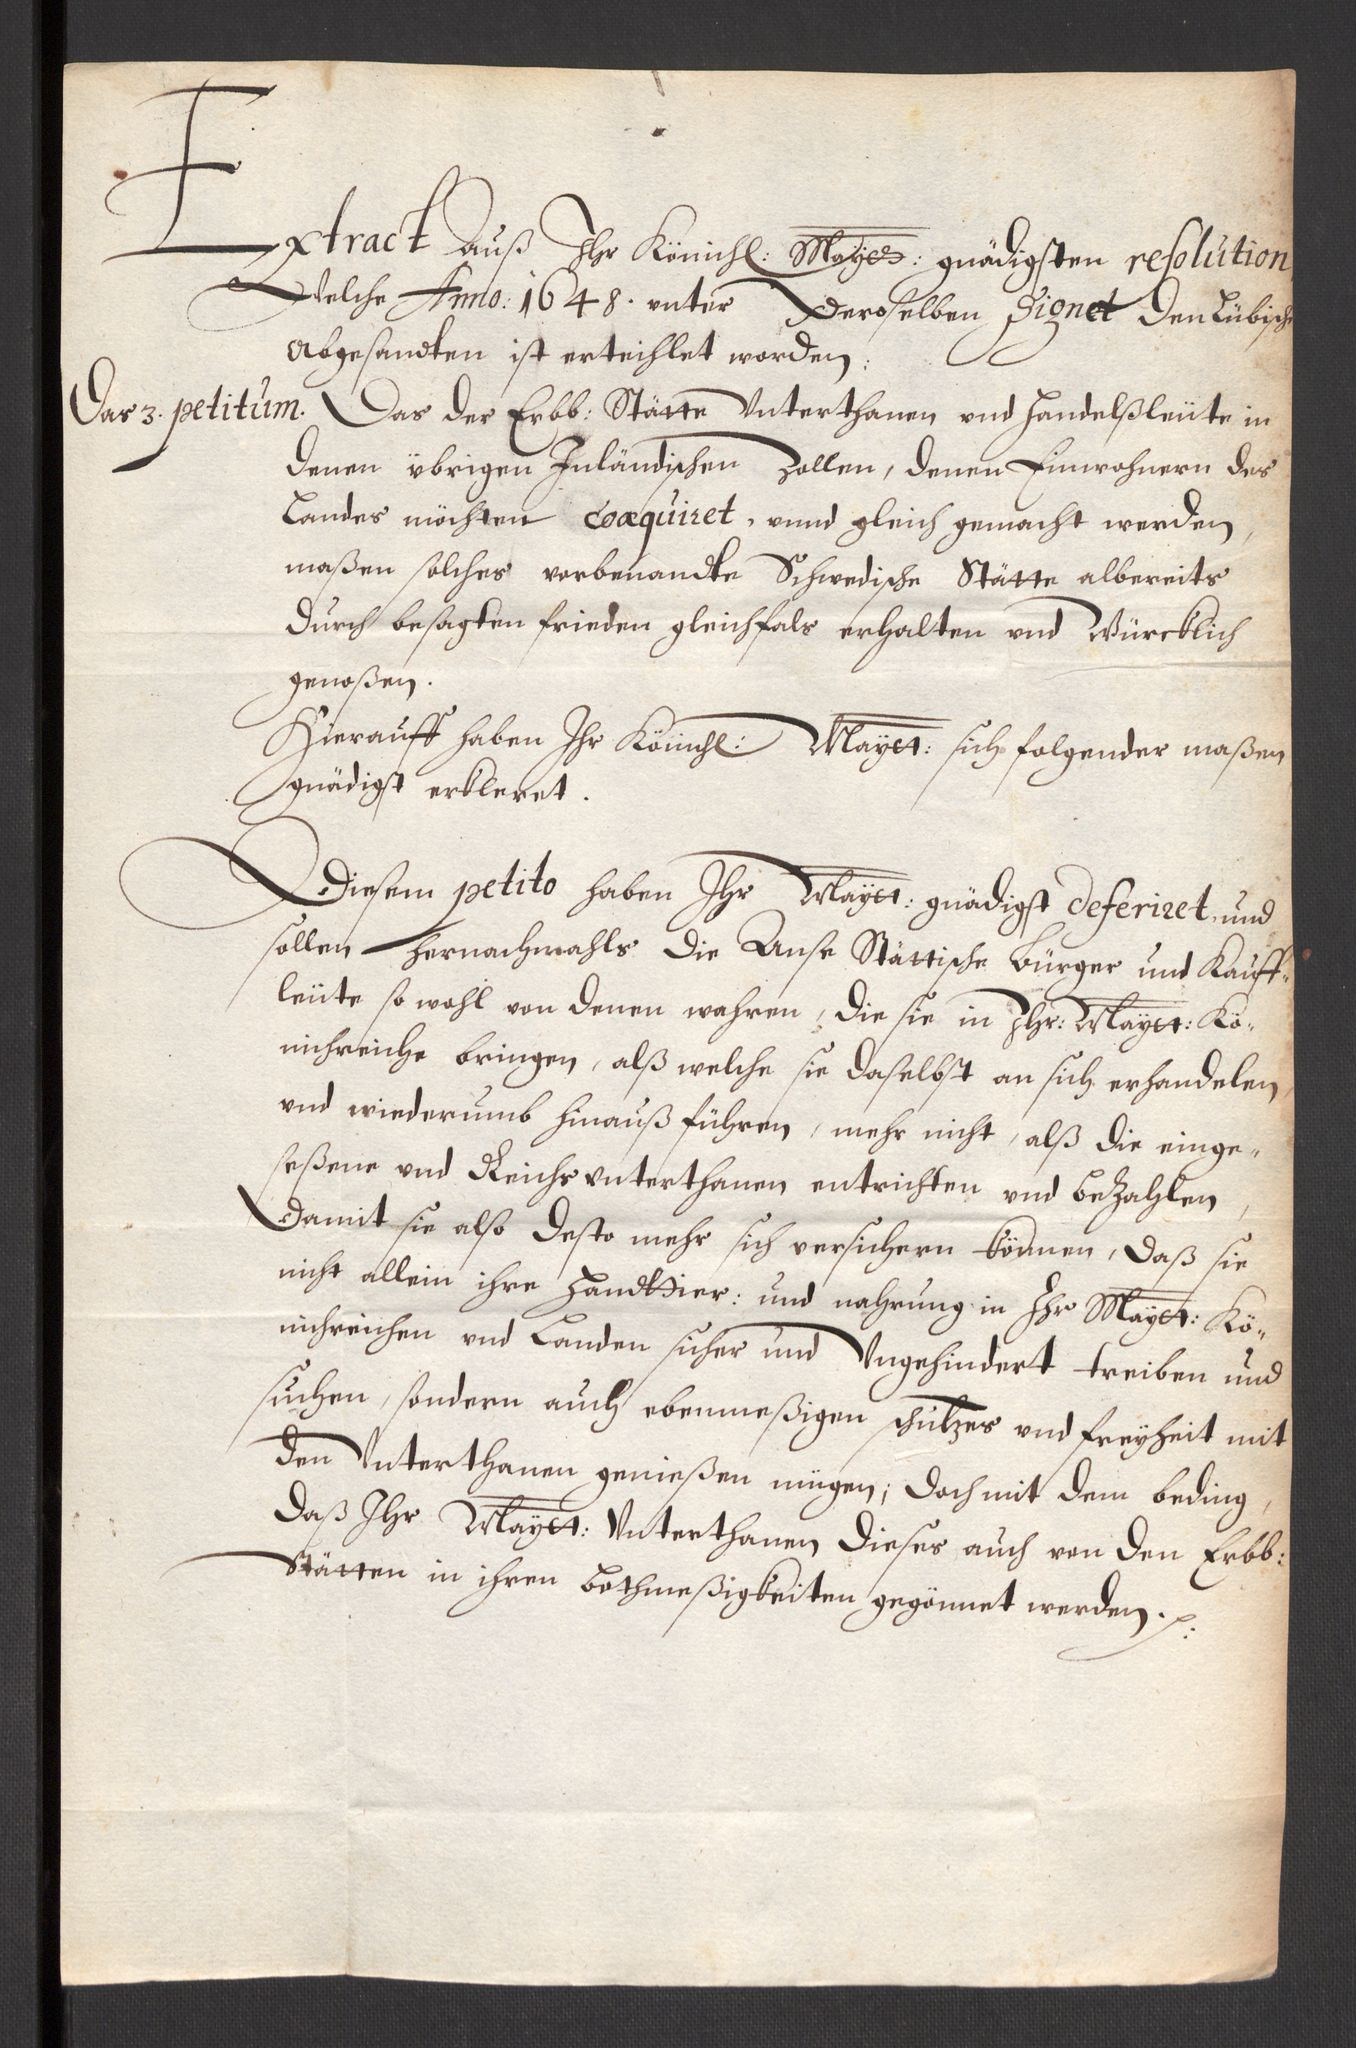 Extract auß Ihr Königl: Mayet: gnädigsten resolution
Welche Anno: 1648. unter Deroselben Signet den Lübische
Abgesandten ist erteihlet worden:
Das 3. petitum. Das der Erbb: Stätte Unterthanen vnd Handelßleüte in
denen übrigen Inländischen Zollen, denen Einwohnern des
Landes möchten coæquiret, vnnd gleich gemacht werden,
maßen solches vorbenandte Schwedische Stätte albereits
durch besagten frieden gleichfals erhalten vnd Würcklich
genoßen.
Hierauff haben Ihr Königl: Mayet: sich folgender maßen
gnädigst erkleret.
Diesem petito haben Ihr Mayet: gnädigst deferiret, und
sollen hernachmahls die Anse Stättische Bürger und Kauff-
leüte so wohl von denen wahren, die sie in Ihr: Mayet: Kö-
nichreiche bringen, alß welche sie daselbst an sich erhandelen,
vnd wiederumb hinauß führen, mehr nicht, alß die einge-
seßene vnd Reichs vnterthanen entrichten vnd bezahlen,
Damit sie also desto mehr sich versichern können, daß sie
nicht allein ihre Handttier: und nahrung in Ihr Mayet: Kö-
nichreichen vnd Landen sicher und Ungehindert treiben und
suchen, sondern auch ebenmeßigen schutzes vnd freyheit mit
den Unterthanen genießen mügen; doch mit dem beding,
daß Ihr Mayet: Unterthanen dieses auch von den Erbb:
Stätten in ihren Bothmeßigkeiten gegönnet werden.